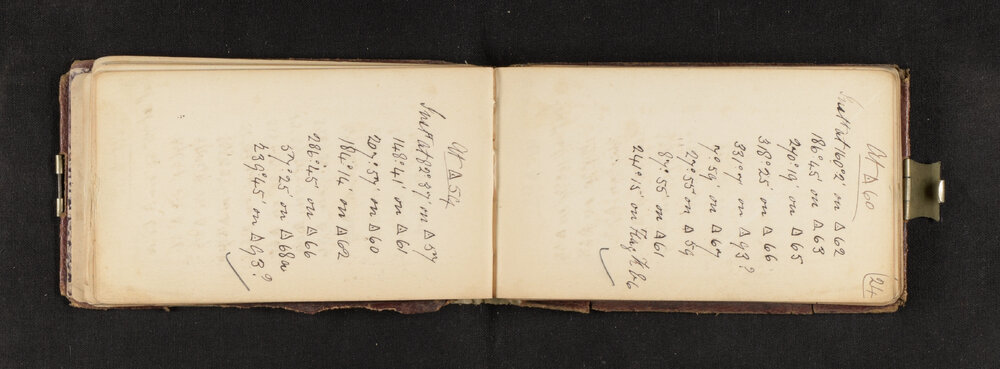 24
At △60
Inst at 160°2' on △62
186°45' on △63
270°19' on △65
318°25' on △66
331°7' on △93?
7°.59' on △67
27°.55' on △59
87°.55' on △61
241°.15' on Flag
At △54
Inst at 82°.37' on △57
148°.41' on △61
207°.57' on △60
184°.14' on △62
286°.45' on △66
57°.25' on △68a
239°.45' on △93?